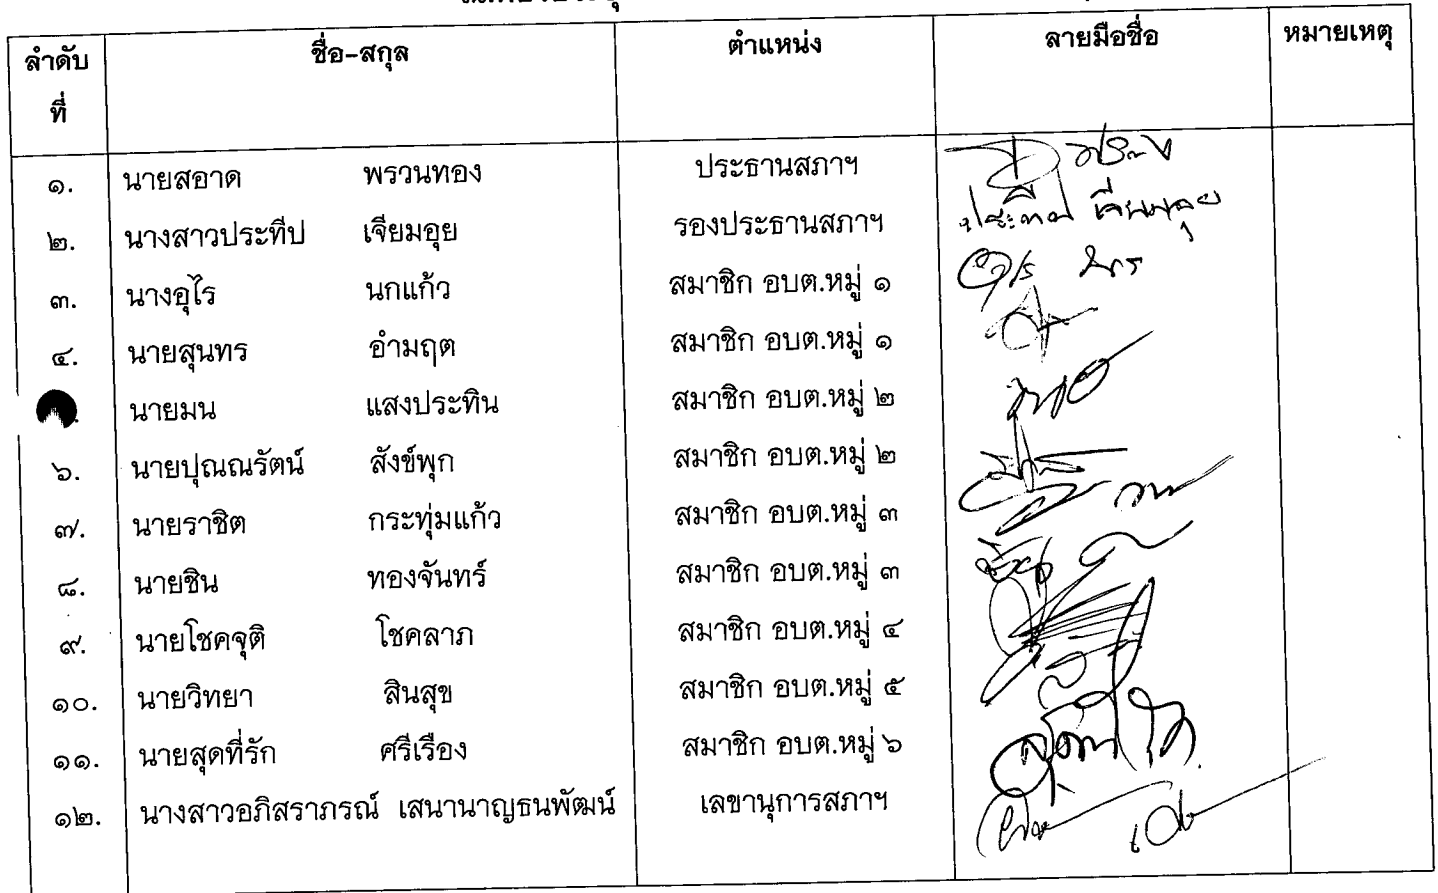 ลำดับที่ ชื่อ-สกุล ตำแหน่ง ลายมือชื่อ หมายเหตุ
๑. นายสอาด พรวนทอง ประธานสภาฯ
๒. นางสาวประทีป เจียมอุย รองประธานสภาฯ ประทีป เจียมอุย
๓. นางอุไร นกแก้ว สมาชิก อบต.หมู่ ๑
๔. นายสุนทร อำมฤต สมาชิก อบต.หมู่ ๑
นายมน แสงประทิน สมาชิก อบต.หมู่ ๒
๖. นายปุณณรัตน์ สังข์พุก สมาชิก อบต.หมู่ ๒
๗. นายราชิต กระทุ่มแก้ว สมาชิก อบต.หมู่ ๓
๘. นายชิน ทองจันทร์ สมาชิก อบต.หมู่ ๓
๙. นายโชคจุติ โชคลาภ สมาชิก อบต.หมู่ ๔
๑๐. นายวิทยา สินสุข สมาชิก อบต.หมู่ ๕
๑๑. นายสุดที่รัก ศรีเรือง สมาชิก อบต.หมู่ ๖
๑๒. นางสาวอภิสราภรณ์ เสนานาญธนพัฒน์ เลขานุการสภาฯ